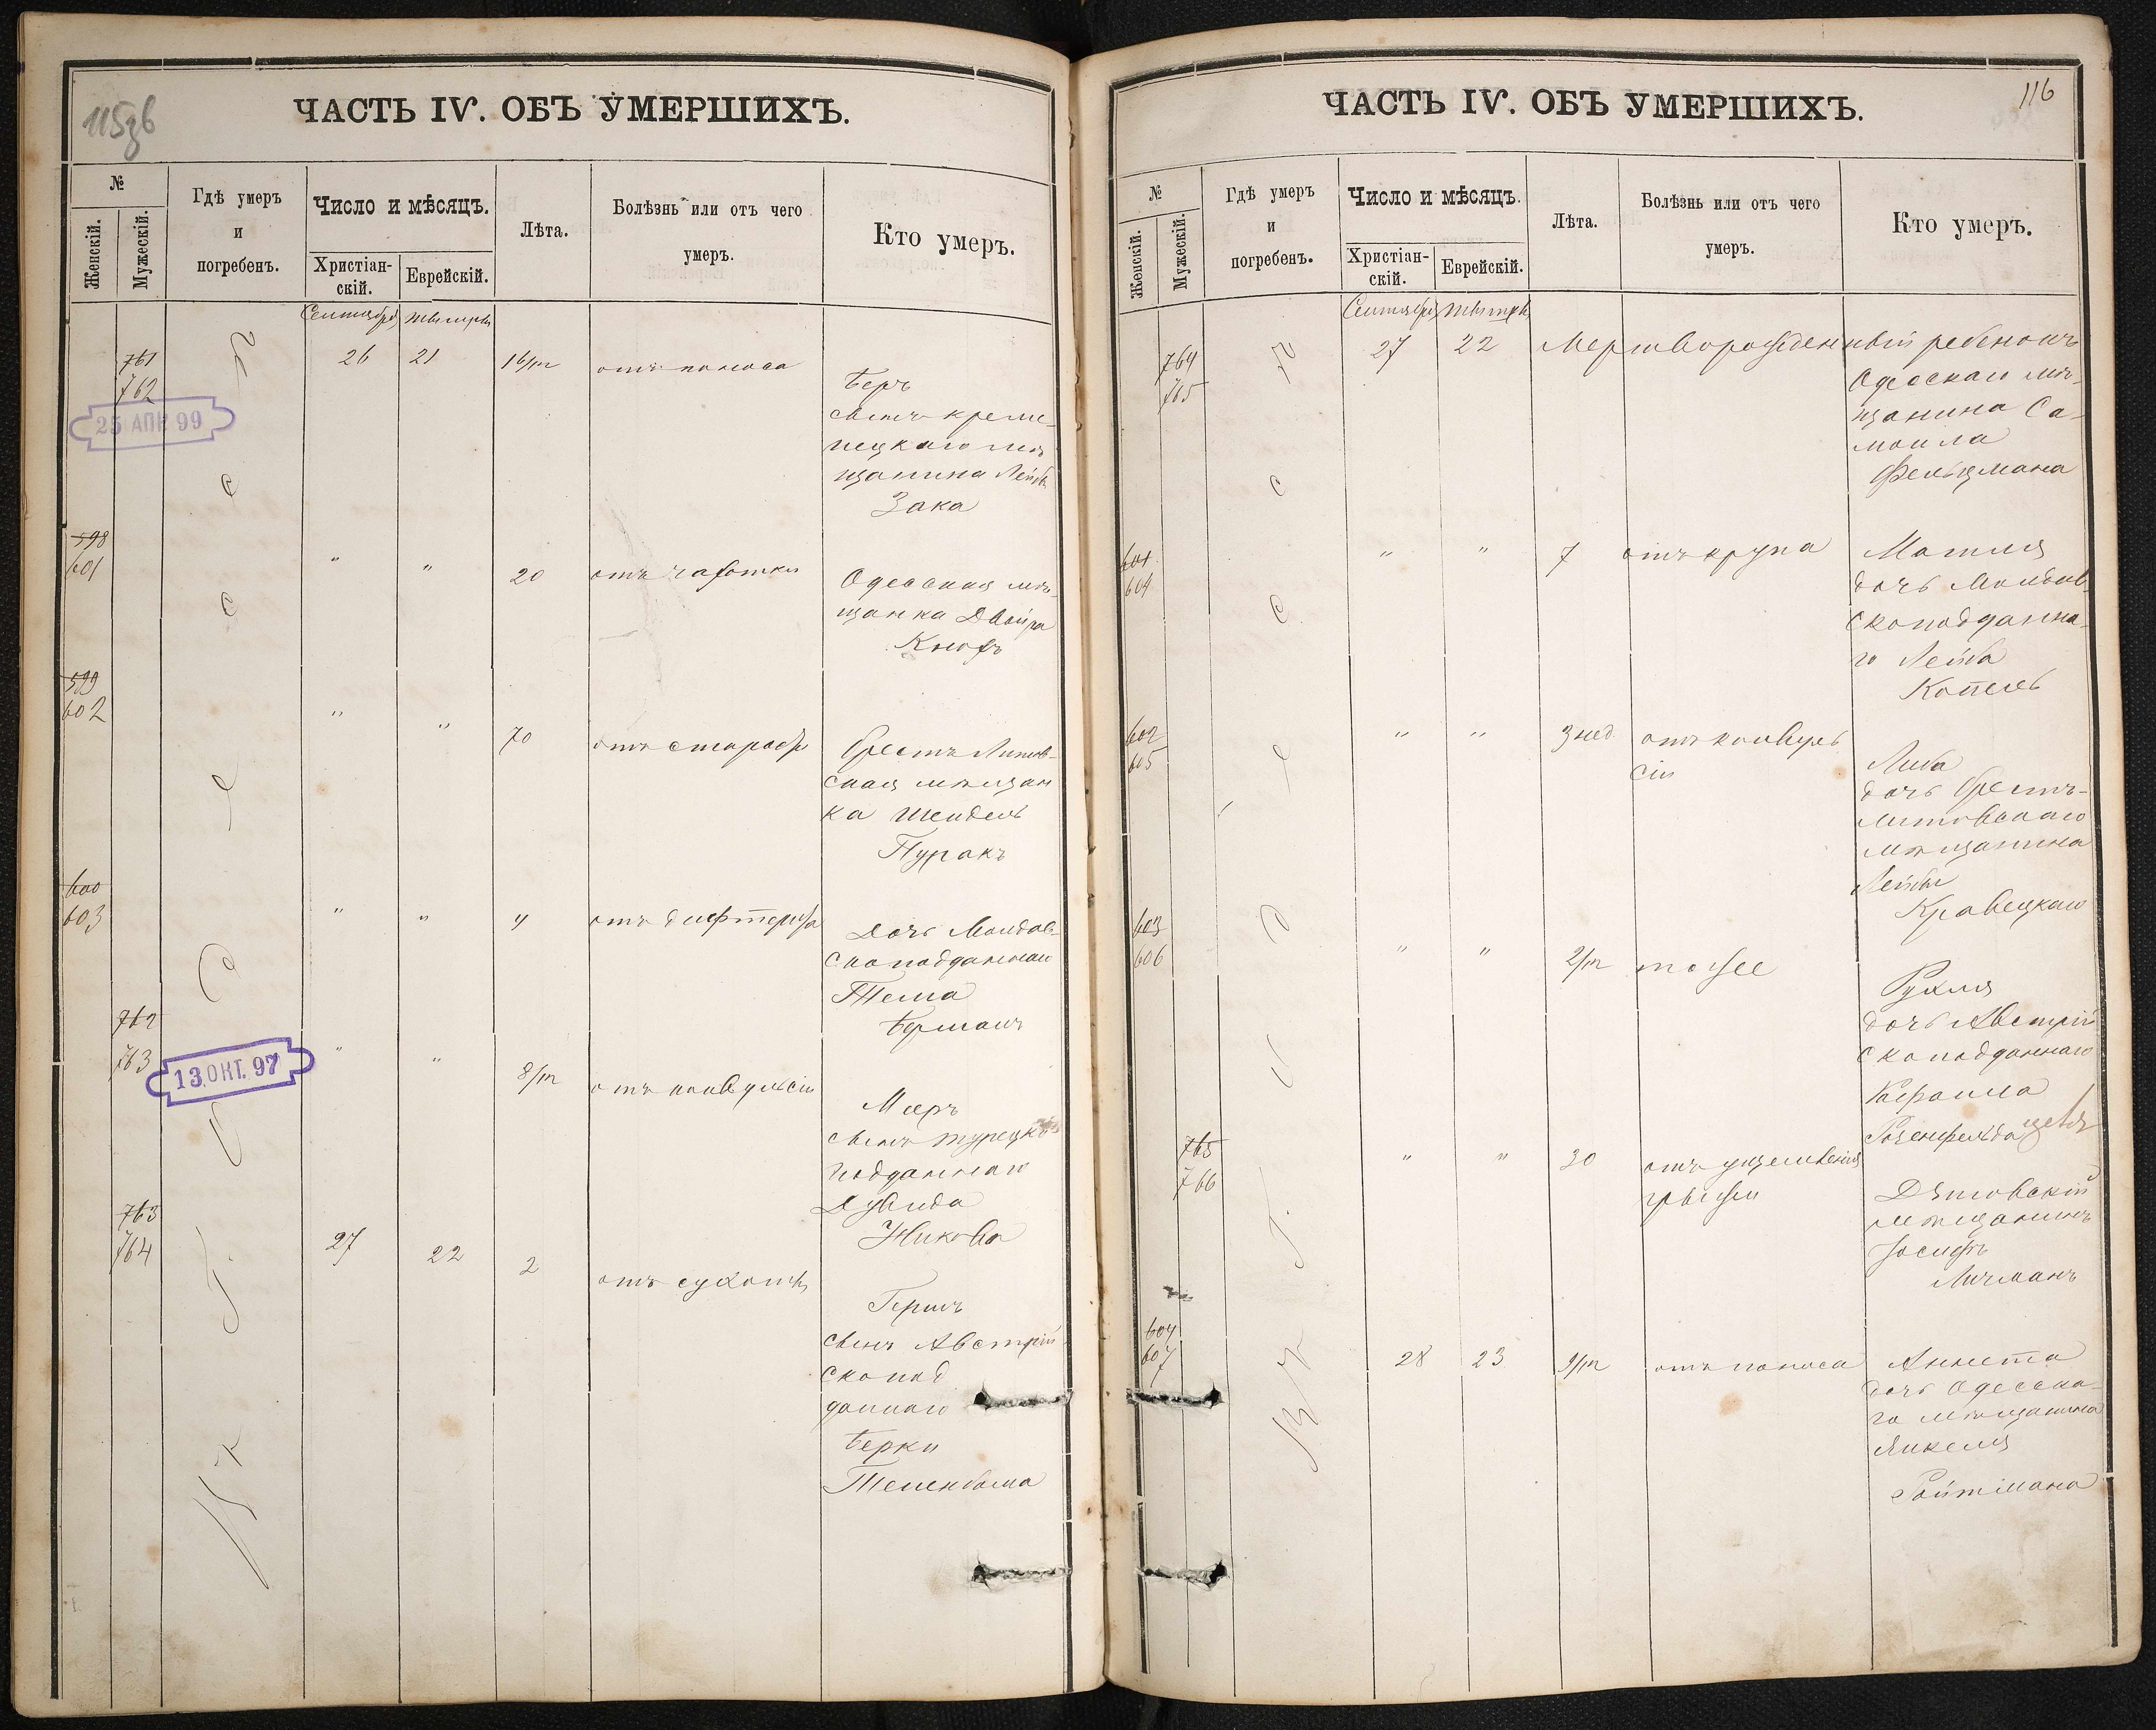 115зв
ЧАСТЬ IV. ОБЪ УМЕРШИХЪ.
№
Женскій.
Мужескій.
Гдѣ умеръ
и
погребенъ.
Число и мѣсяцъ.
Христіан-
скій.
Еврейскій.
Лѣта.
Болѣзнь или отъ чего
умеръ.
Кто умеръ.
Сентября
761
762
26
21
16/m
отъ поноса
Беръ
сынъ креме-
нецкаго мѣ
щанина Лейбы
Зака
25 АПР 99
598
601
"
"
20
отъ чахотки
Одесская мѣ-
щанка Двойра
599
602
"
"
70
отъ старости
Брестъ Литов-
ская мѣщан
ка Шендель
Пуракъ
600
603
"
"
4
отъ дифтерита
Дочь Молдав-
скоподданнаго
Тема
Берманъ
762
763
13.ОКТ.97
"
"
8/m
отъ конвульсіи
Мееръ
сынъ турецко
подданнаго
Дувида
763
764
27
22
2
отъ сухотъ
Гершъ
сынъ Австрій
скопод
даннаго
Берки
Тененбома
Одесса
116
ЧАСТЬ IV. ОБЪ УМЕРШИХЪ.
№
Женскій.
Мужескій.
Гдѣ умеръ
и
погребенъ.
Число и мѣсяцъ.
Христіан-
скій.
Еврейскій.
Лѣта.
Болѣзнь или отъ чего
умеръ.
Кто умеръ.
Сентября
764
765
27
22
Мертворожденный ребенокъ
Одесскаго мѣ-
щанина Са-
моила
Фельцмана
601
604
"
"
7
отъ крупа
Мотля
дочь Молдав-
скоподданна-
го Лейба
Копель
602
605
"
"
3 нед
отъ конвуль
сіи
Либа
дочь Брестъ-
литовскаго
мѣщанина
Лейбы
Кравецкаго
603
606
"
"
2/m
тоже
Рухля
дочь Австрій
скоподданнаго
Израила
Розенфельда
765
766
"
"
30
отъ ущемленія
грыжи
мѣщанинъ
Іосифъ
Личманъ
604
607
28
23
9/m
отъ поноса
Аннета
дочь Одесска-
го мѣщанина
Янкеля
Ройтмана